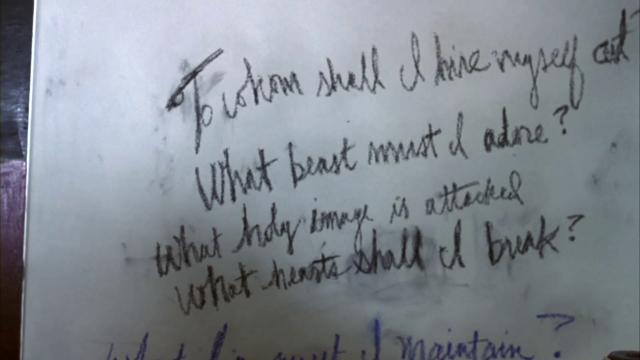 To whom shall I hire myself out
What beast must I adore?
What holy image is attacked
What hearts shall I break?
What lie must I maintain?